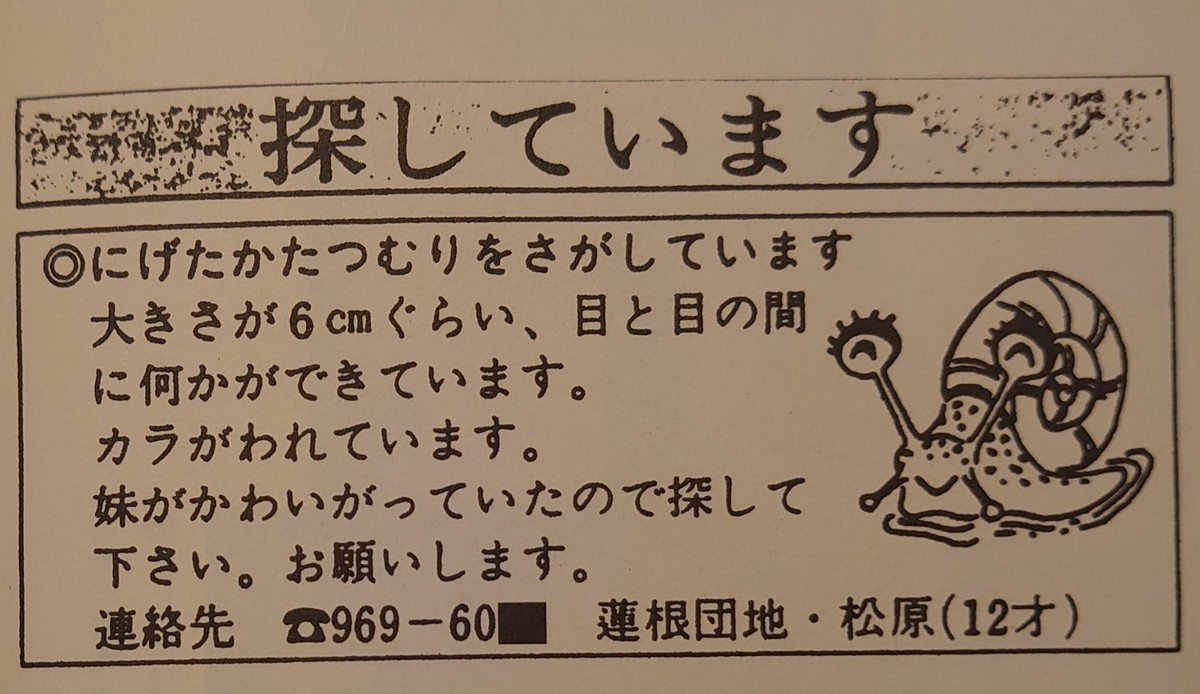 探しています
◎にげたかたつむりをさがしています
大きさが6cmぐらい、目と目の間
に何かができています。
カラがわれています。
妹がかわいがっていたので探して
下さい。お願いします。
連絡先 ☎969－60■ 蓮根団地・松原(12才)